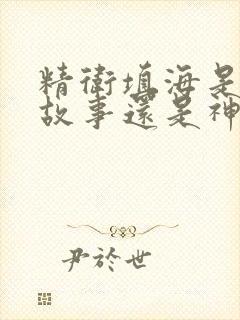 精衛填海是
故事還是神
尹於世